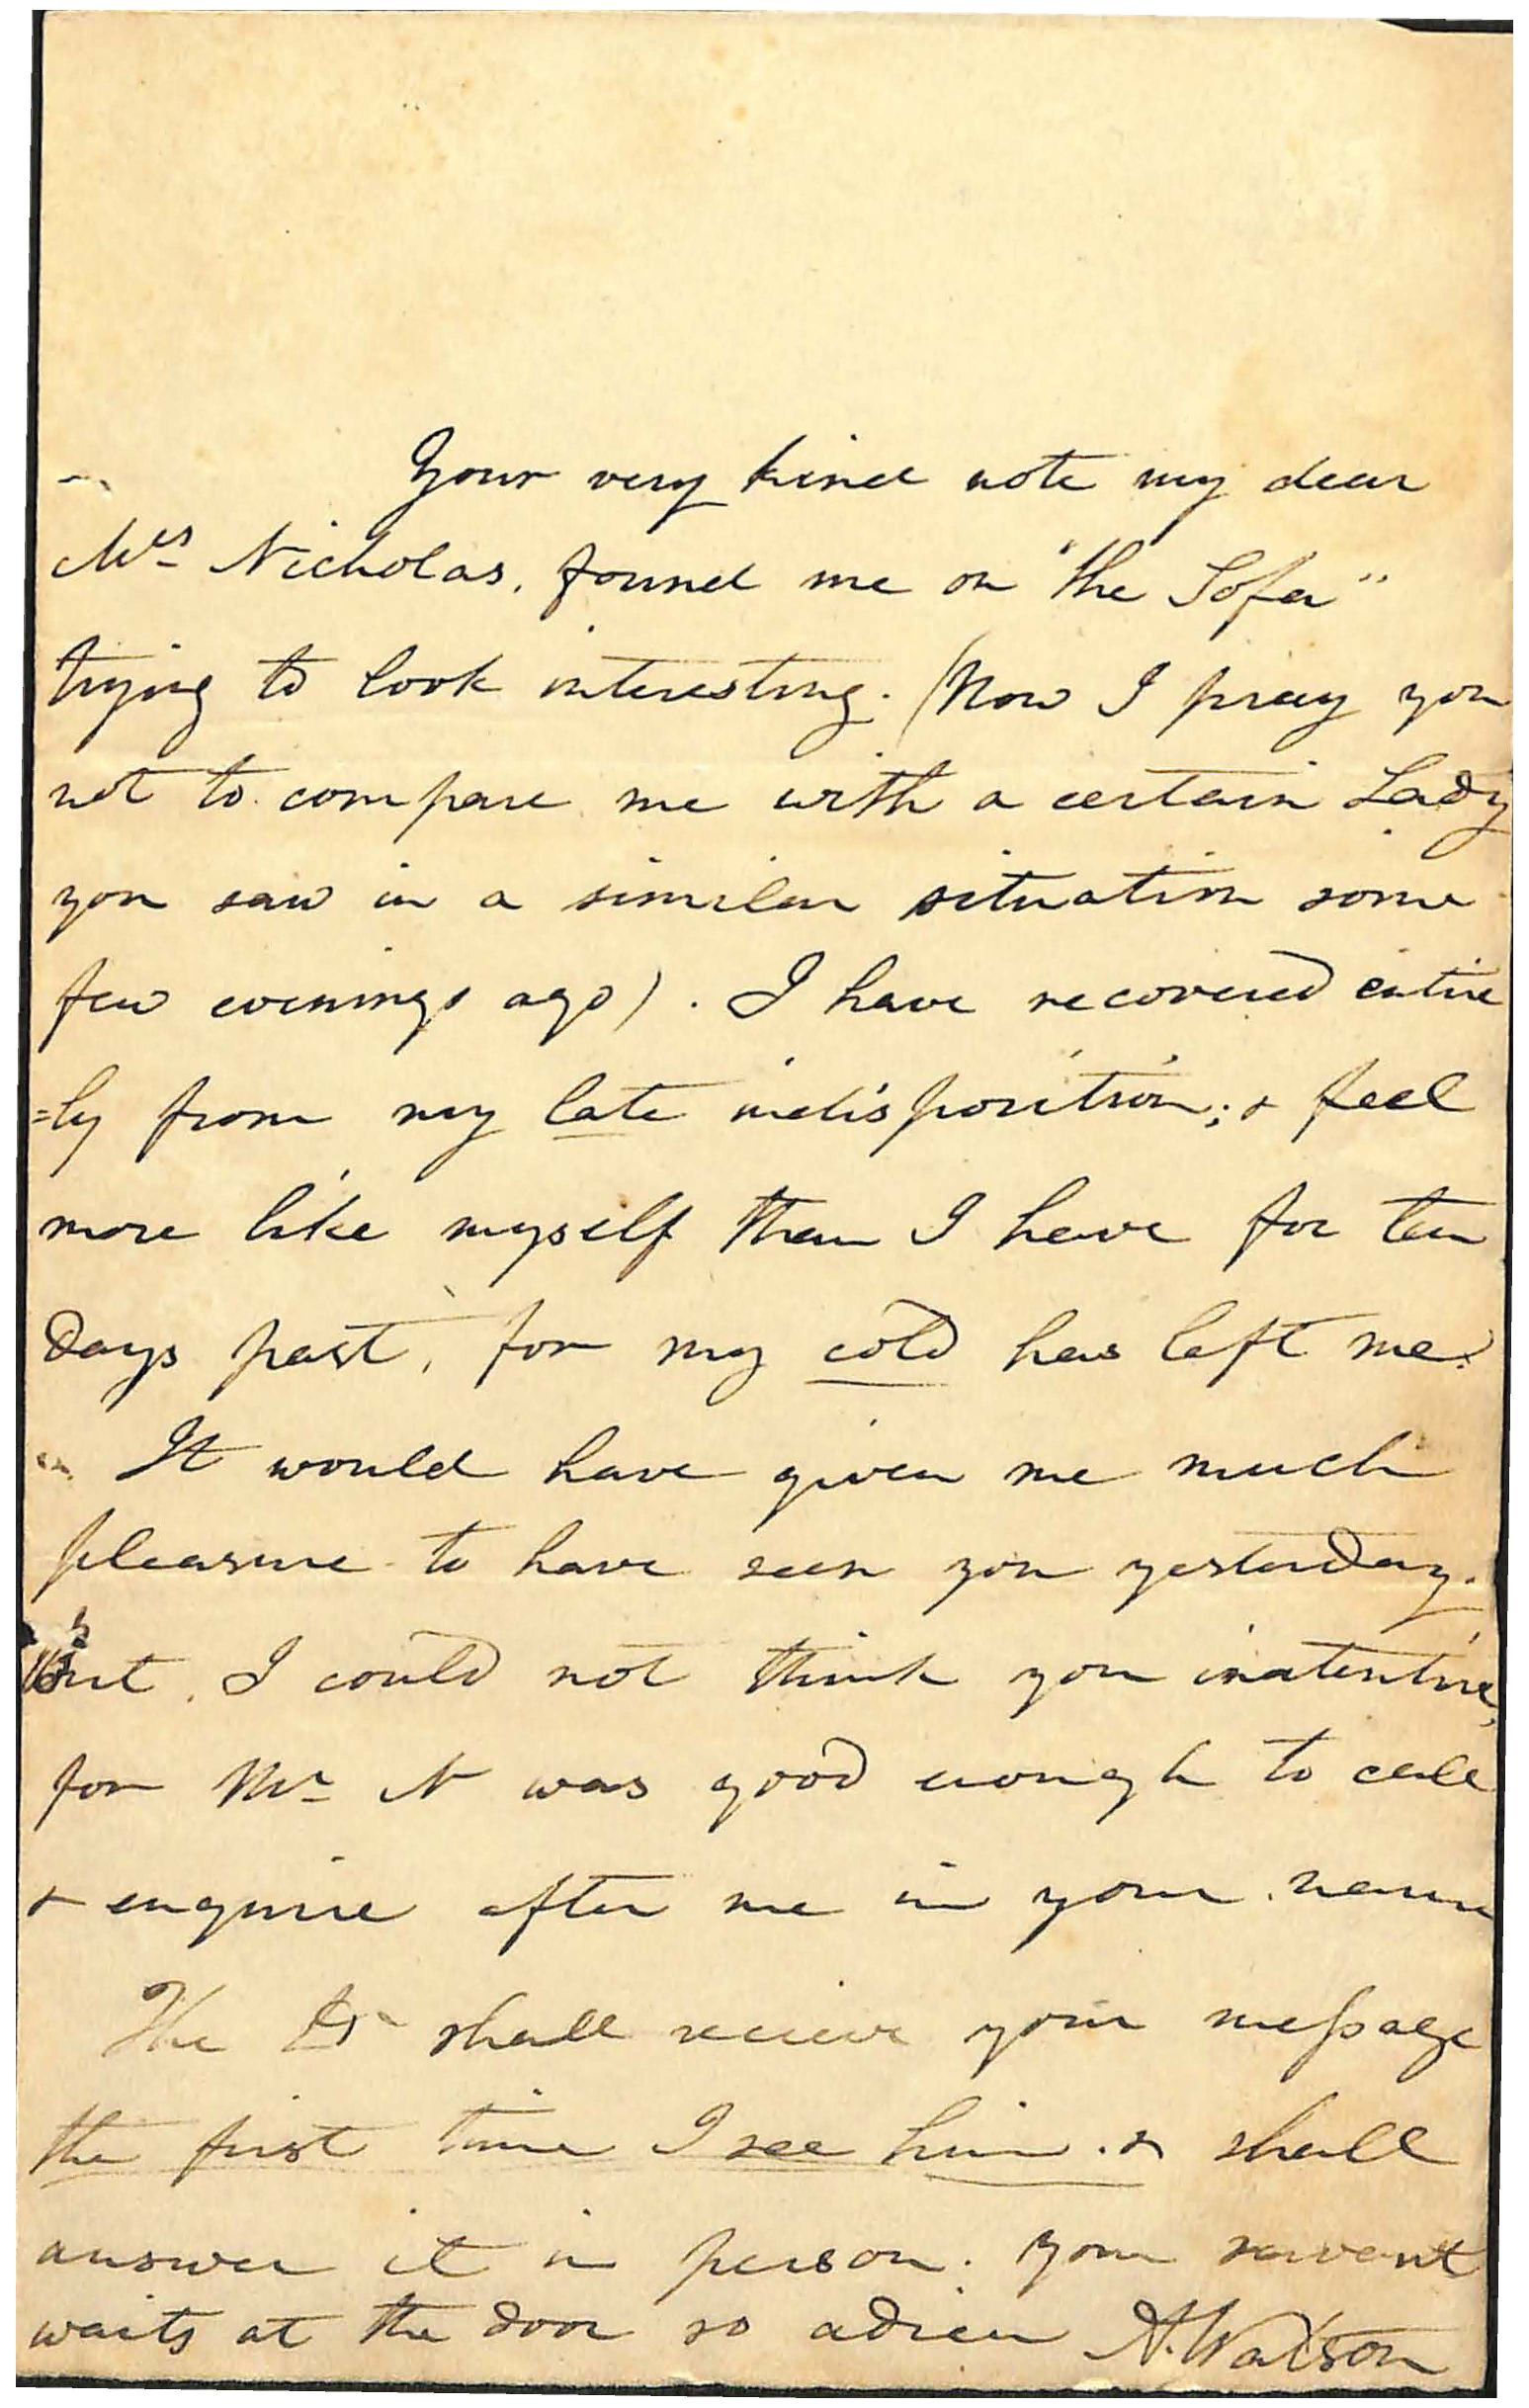 Your very kind note my dear
Mrs Nicholas, found me on "the Sofa"
trying to look interesting. (Now I pray you
not to compare me with a certain Lady
you saw in a similar situation some
few evenings ago). I have recovered entire
=ly from my late indisposition; & feel
more like myself than I have for ten
days past, for my cold has left me.
It would have given me much
pleasure to have seen you yesterday.
but, I could not think you inatentive,
for Mr N was good enough to call
& enquire after me in your name
The Dr shall recieve your message
the first time I see him. & shall
answer it in person. your servant
waits at the door so adieu A. Watson